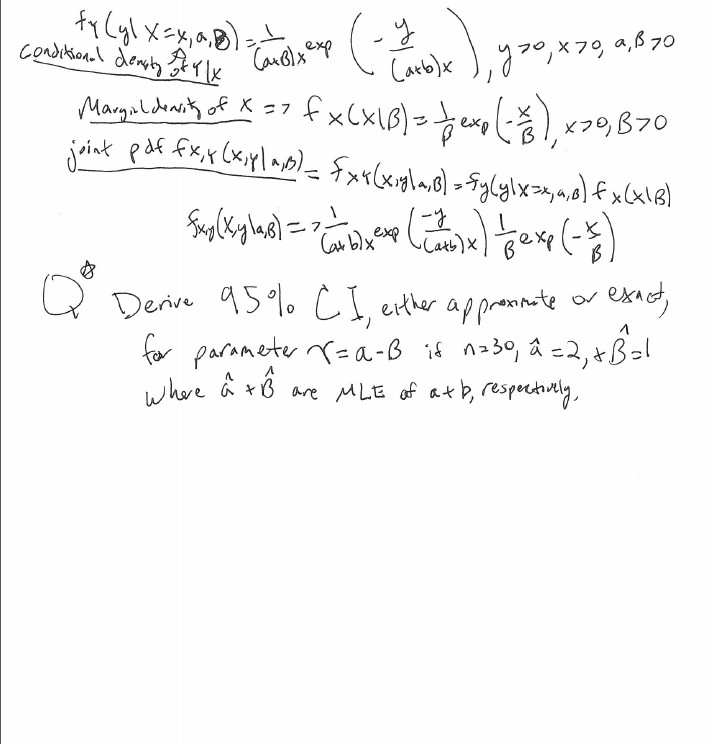 fY(y| X=x, a, B) = 1/(a+B)x exp (- y/(a+b)x), y>0, x>0, a, B>0
Conditional density of Y|X
Marginal density of X => f X(X|B) = 1/B exp (- x/B), x>0, B>0
joint pdf fX,Y(x,y|a,B) = fXY(x,y|a,B) = fy(y|X=x, a, B) fX(x|B)
fX,y(X,y|a,B) => 1/(a+b)x exp (-y/(a+b)x) 1/B exp (- x/B)
Q* Derive 95% CI, either approximate or exact,
for parameter γ = a-B if n=30, â=2, + B̂=1
where â + B̂ are MLE of a+b, respectively.